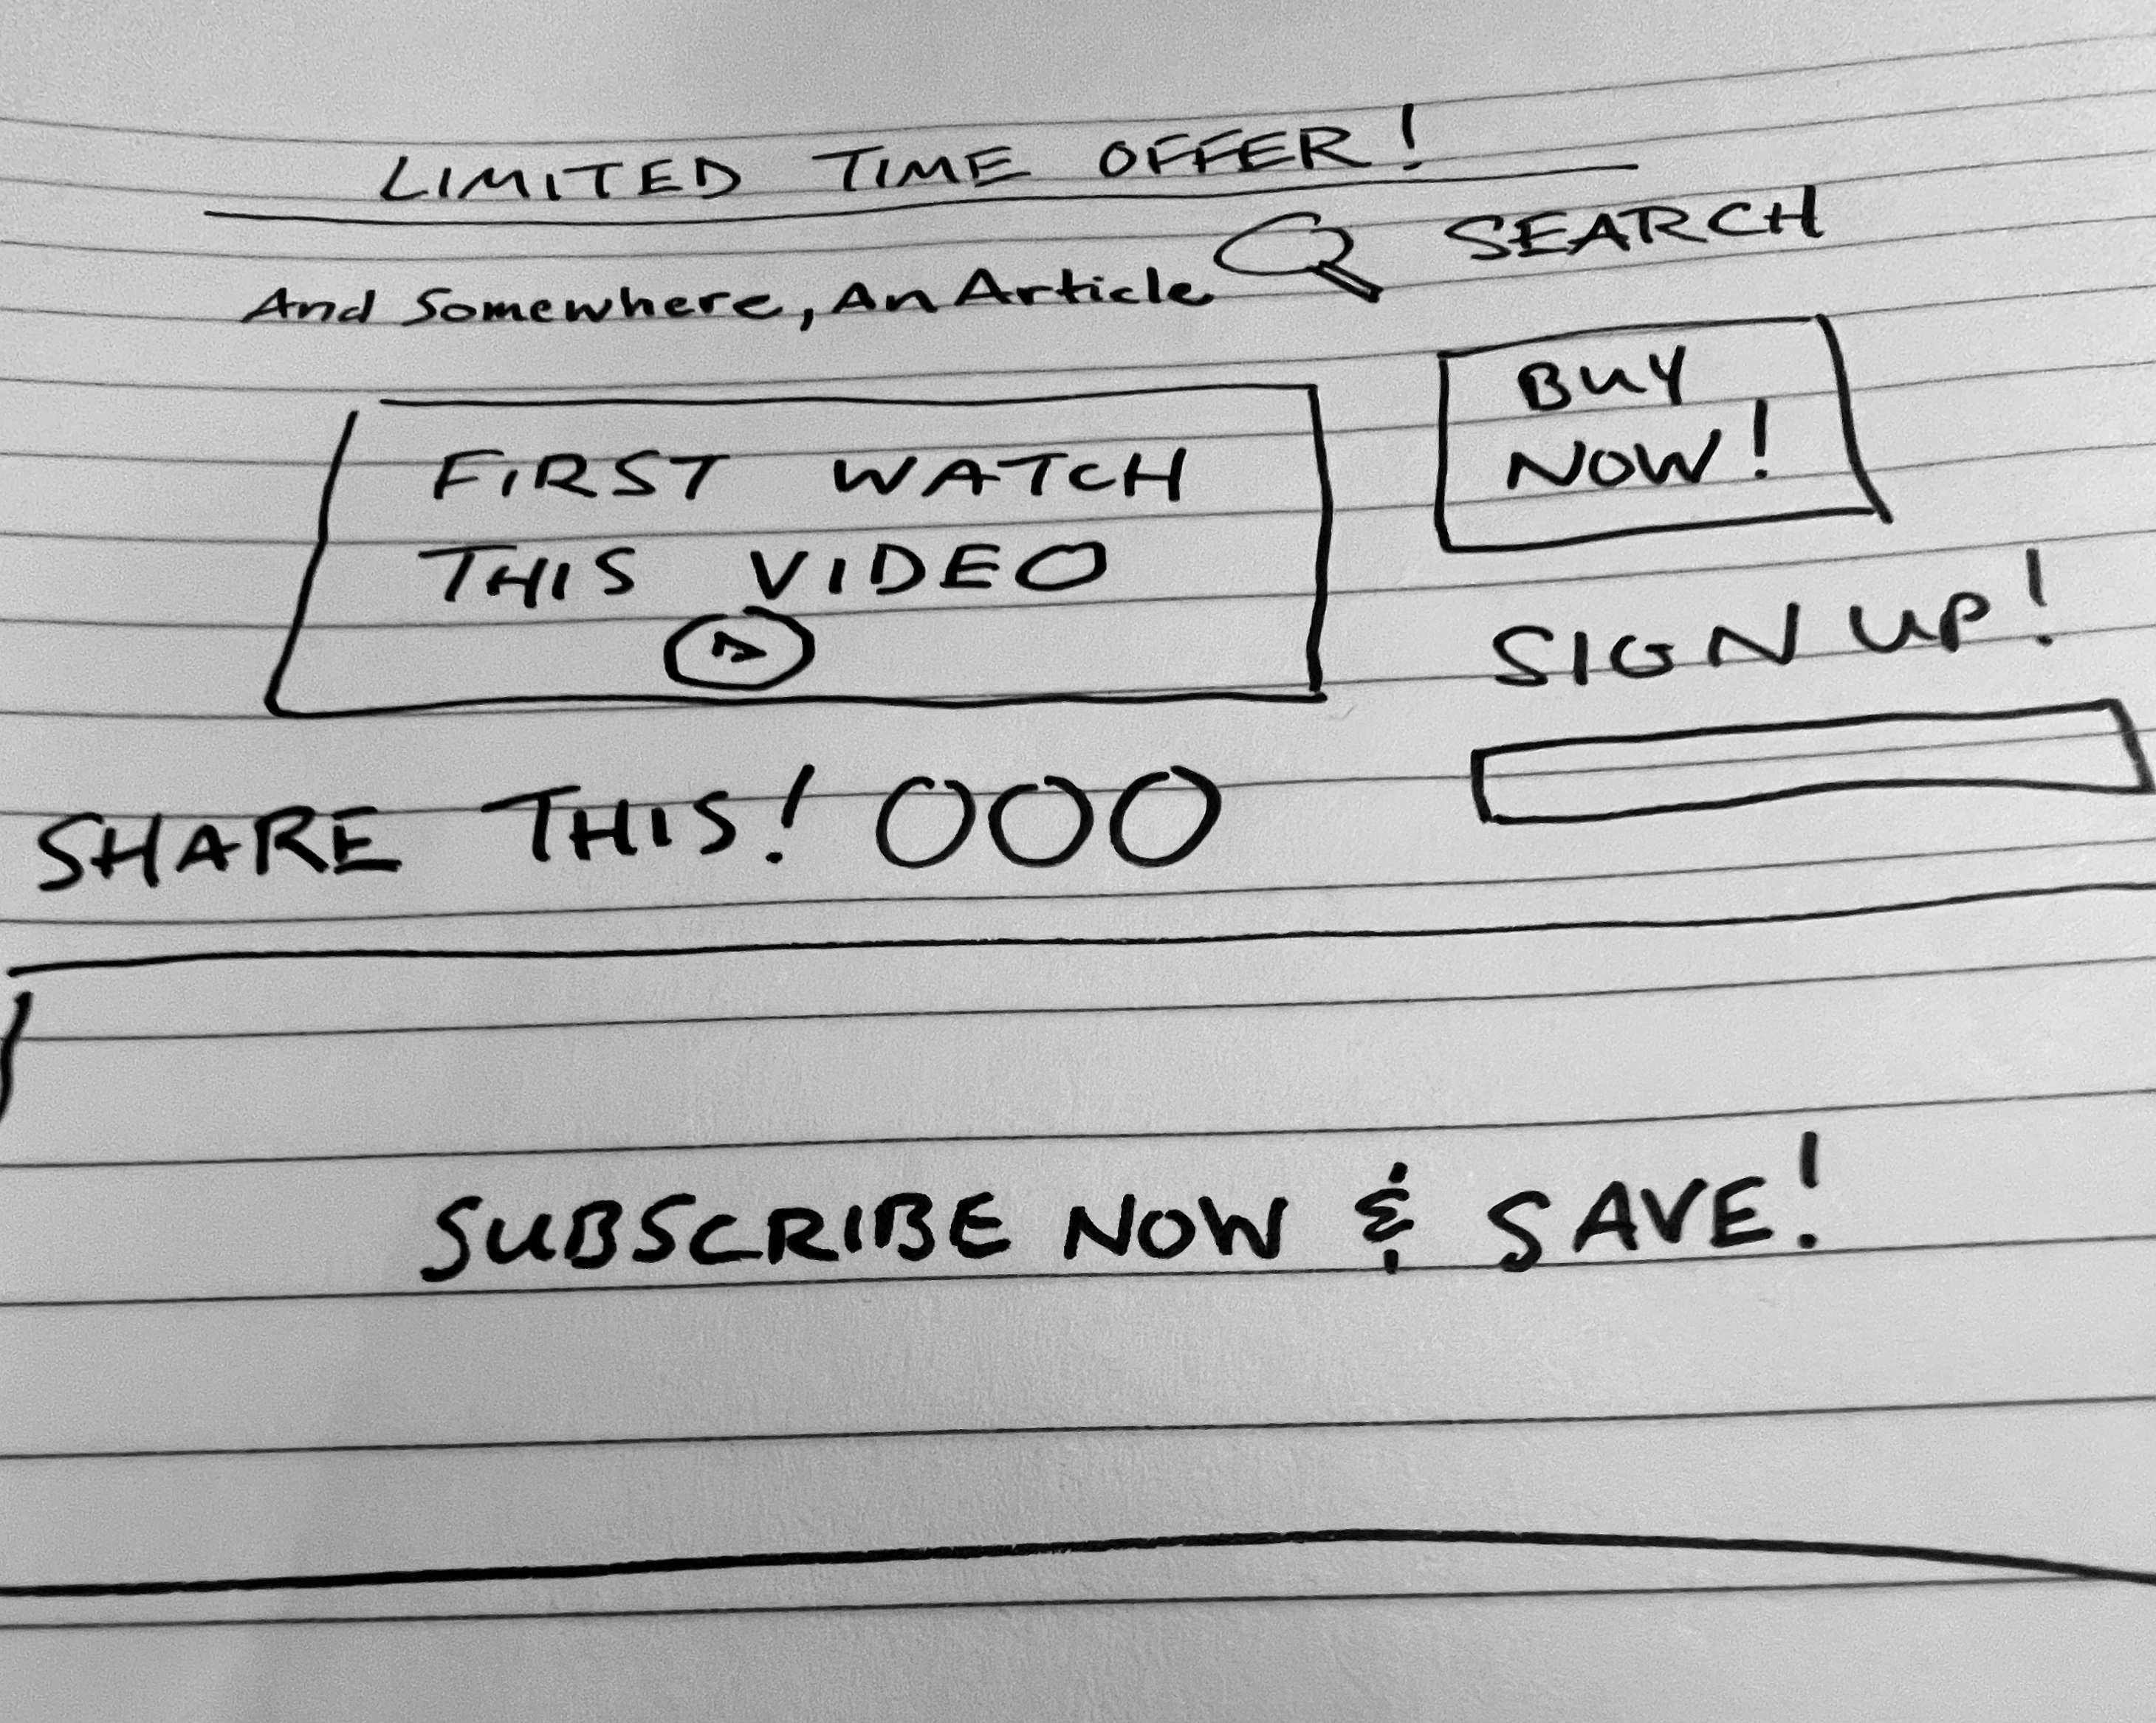 LIMITED TIME OFFER!
SEARCH
And Somewhere, An Article
BUY
NOW!
FIRST WATCH
THIS VIDEO
SIGN UP!
SHARE THIS!
SUBSCRIBE NOW & SAVE!